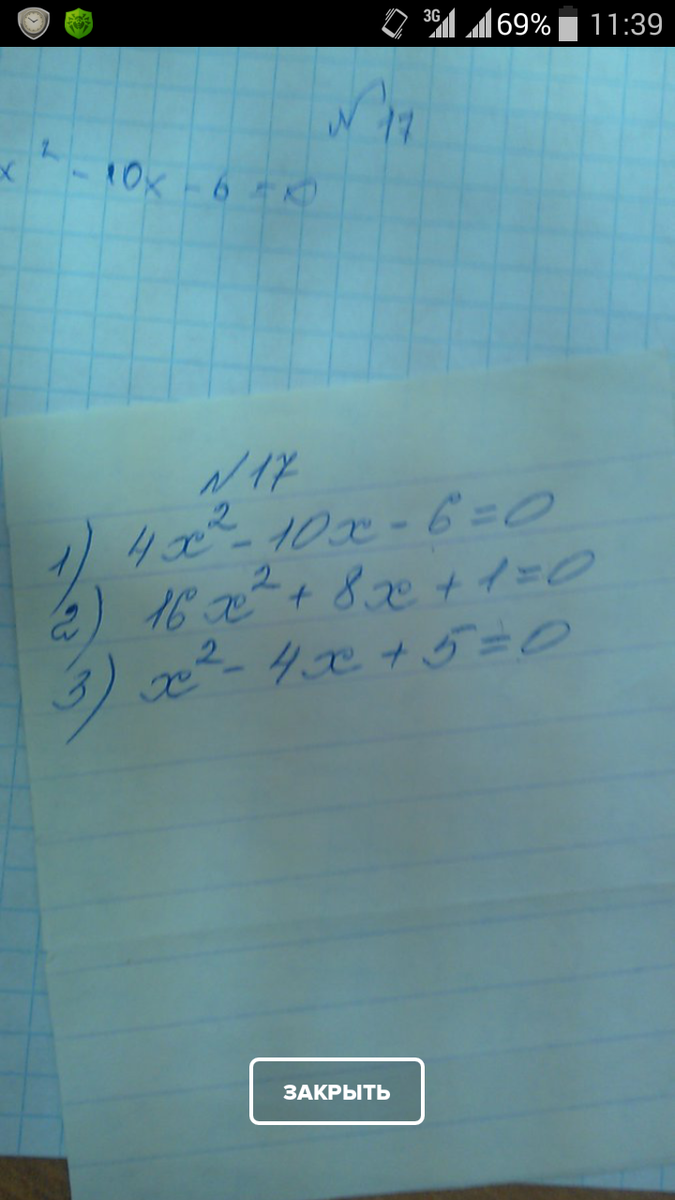 3G 69% 11:39
N 17
x² - 10x - 6 = 0
N 17
1) 4x² - 10x - 6 = 0
2) 16x² + 8x + 1 = 0
3) x² - 4x + 5 = 0
ЗАКРЫТЬ